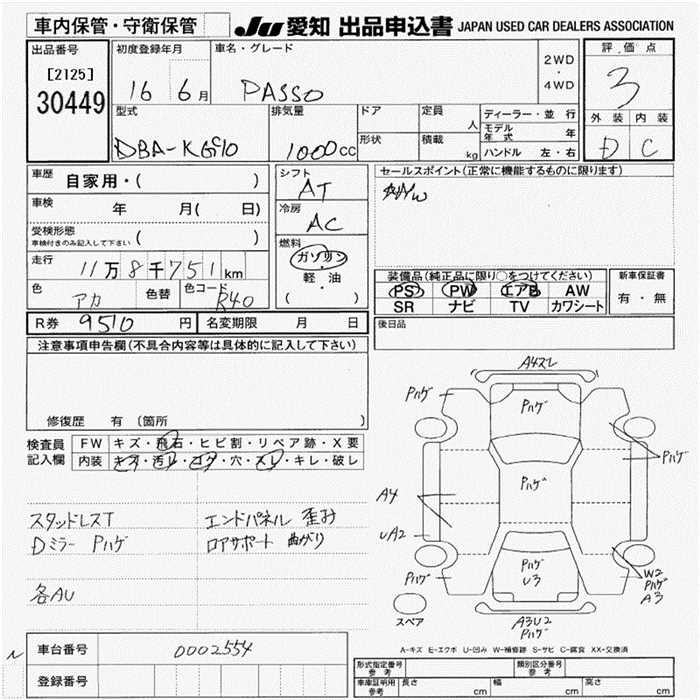 車内保管・守衛保管
JU 愛知 出品申込書 JAPAN USED CAR DEALERS ASSOCIATION
出品番号
[2125]
30449
初度登録年月
16 6月
車名・グレード
PASSO
2WD
・
4WD
評価点
3
外装 内装
D C
型式
DBA-KGC10
排気量
1000cc
ドア
形状
定員
人
積載
kg
ディーラー・並行
モデル年式 年
ハンドル 左・右
車歴
自家用・( )
車検
年 月( 日)
受検形態
車検付きのみ記入して下さい ( )
走行
11万8千751km
色
アカ
色替
色コード
R40
シフト
AT
冷房
AC
燃料
ガソリン
・
軽・油
( )
セールスポイント(正常に機能するものに限ります)
装備品(純正品に限り○をつけてください)
PS PW エアB AW
SR ナビ TV カワシート
新車保証書
有・無
後日品
R券 9510 円
名変期限 月 日
注意事項申告欄(不具合内容等は具体的に記入して下さい)
修復歴 有 〔箇所
検査員
記入欄
FW キズ・飛石・ヒビ割・リペア跡・X要
内装 キズ・汚レ・コゲ・穴・スレ・キレ・破レ
スタッドレスT
Dミラー Pハゲ
各AU
エンドパネル 歪み
ロアサポート 曲がり
A4スレ
Pハゲ
Pハゲ
Pハゲ
Pハゲ
A4
UA2
Pハゲ
Pハゲ
U3
Pハゲ
W2
A3
A3U2
Pハゲ
スペア
A-キズ E-エクボ U-凹み W-補修跡 S-サビ C-腐食 XX-交換済
車台番号
0002554
登録番号
形式指定番号
参考
類別区分番号
参考
車庫証明用
参考
長さ cm
幅 cm
高さ cm